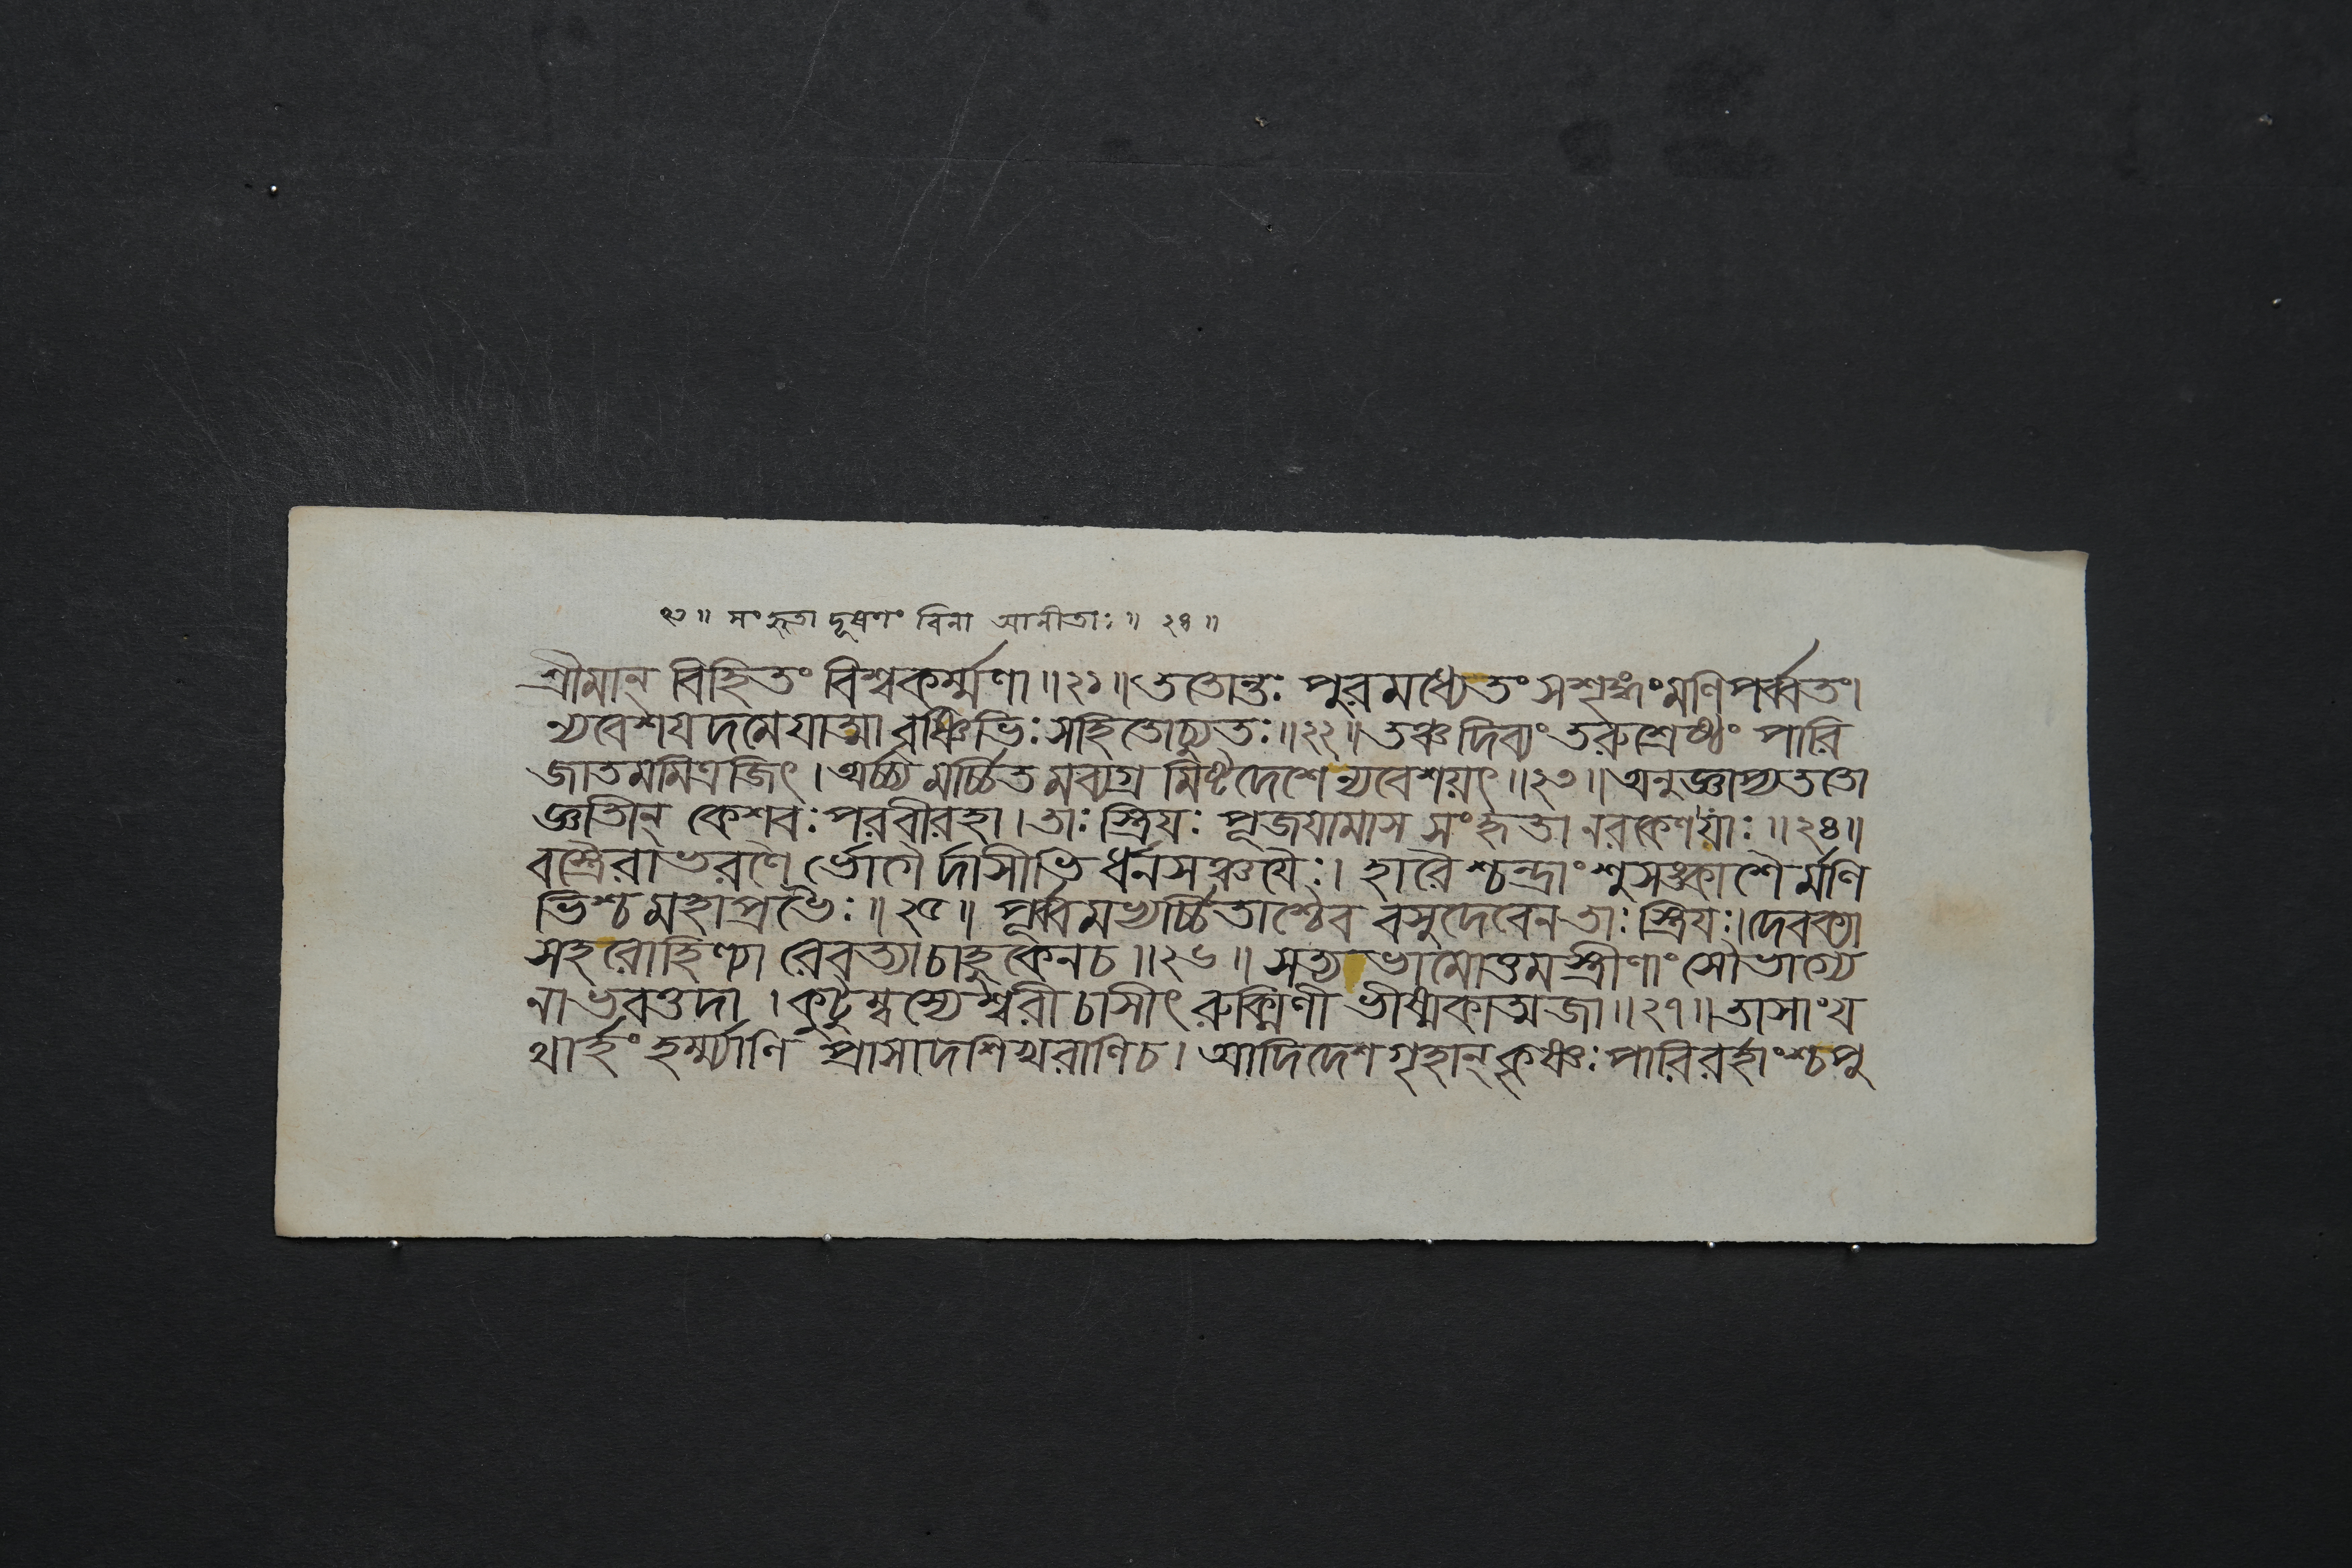 ২৩॥ সংহৃতা দূষণং বিনা আনীতাঃ॥ ২৪॥
শ্রীমান্ বিহিতং বিশ্বকর্ম্মণা॥২১॥ততোন্তঃ পুরমধ্যেতং সশৃঙ্গংমণিপর্ব্বতং।
ন্যবেশযদমেযাত্মা বৃষ্ণিভিঃসহিতোচ্যুতঃ॥২২॥তঞ্চদিব্যং তরুশ্রেষ্ঠং পারি
জাতমমিত্রজিৎ।অর্চ্চ্য মর্চ্চিতমব্যগ্র মিষ্টদেশেন্যবেশয়ৎ॥২৩॥অনুজ্ঞাপ্যততো
জ্ঞাতীন্ কেশবঃপরবীরহা।তাঃ স্ত্রিযঃ পূজযামাস সংহৃতা নরকেণযাঃ॥২৪॥
বস্ত্রৈরাভরণৈ র্ভোগৈ র্দাসীভি র্ধনসঞ্চযৈঃ। হারৈ শ্চন্দ্রাংশুসঙ্কাশৈ র্মণি
ভিশ্চ মহাপ্রভৈঃ॥২৫॥ পূর্ব্বমভ্যর্চ্চিতাশ্চৈব বসুদেবেনতাঃস্ত্রিযঃ।দেবক্যা
সহরোহিণ্যা রেবত্যাচাহুকেনচ॥২৬॥ সত্যভামোত্তমস্ত্রীণাং সৌভাগ্যে
নাভবত্তদা।কুটুম্বস্যেশ্বরী চাসীৎ রুক্মিণী ভীষ্মকাত্মজা॥২৭॥তাসাংয
থার্হং হর্ম্ম্যাণি প্রাসাদশিখরাণিচ। আদিদেশগৃহান্কৃষ্ণঃপারিবর্হাংশ্চপু